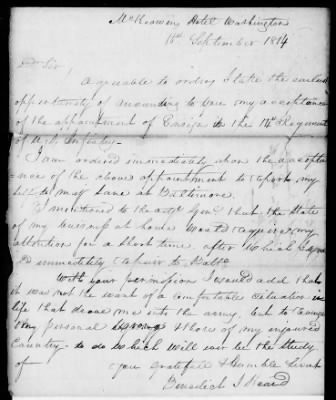 McKeowin's Hotel Washington
16th September 1814
Dr Sir
Agreeable to orders I take the earliest
opportunity of announcing to you my acceptance
of the appointment of Ensign in the Regiment
of U.S. Infantry
I am ordered immediately upon the accepta
-nce of the above appointment to report my
self to Majr Lane at Baltimore
I mentioned to the Genl that the State
of my business at home would require my
attention for a short time, after which I
immediately repair to Balto
With your permission I would add that
it was not the want of a comfortable situation in
life that drove me into the army, but to
my personal & those of my injured
Country to do which will ever be the study
of your grateful & humble Servt
Benedict I Heard